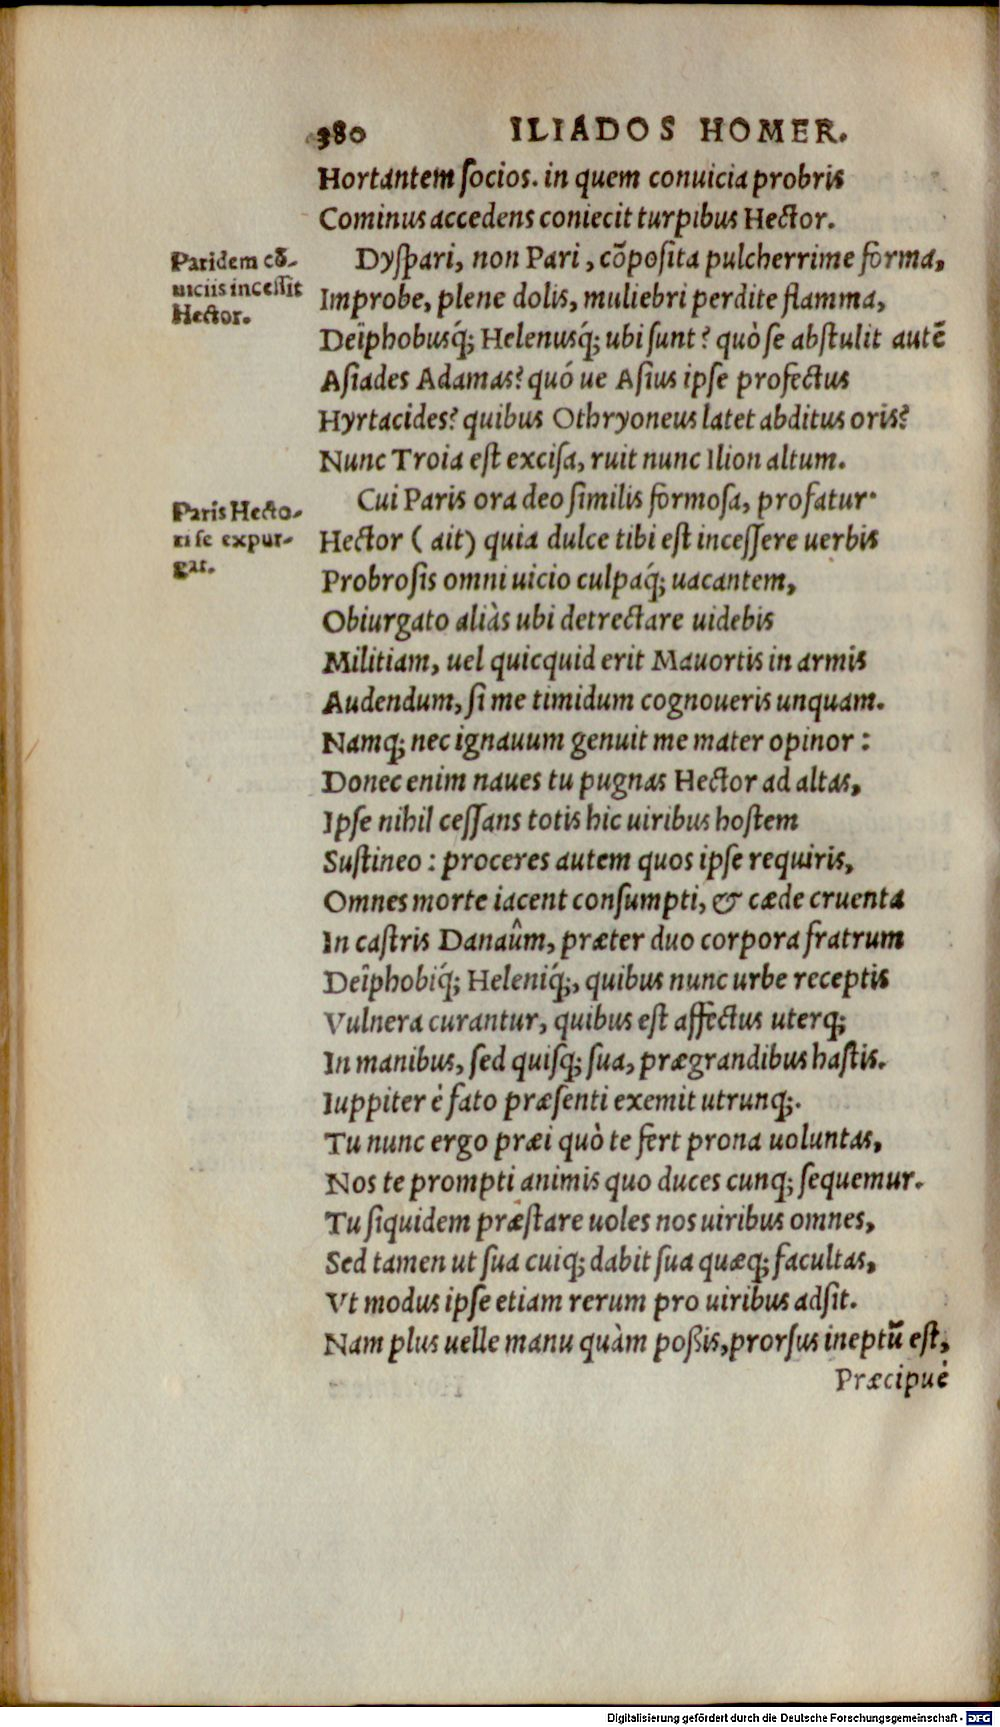 380 ILIADOS HOMER.
Hortantem ſocios. in quem conuicia probris
Cominus accedens coniecit turpibus Hector.
Paridem cō-
uiciis inceſſit
Hector.
Dyſpari, non Pari, cōpoſita pulcherrime forma,
Improbe, plene dolis, muliebri perdite flamma,
Deïphobusq́; Helenusq́; ubi sunt? quò se abſtulit autē
Aſiades Adamas? quó ue Aſius ipſe profectus
Hyrtacides? quibus Othryoneus latet abditus oris?
Nunc Troia eſt exciſa, ruit nunc Ilion altum.
Cui Paris ora deo ſimilis formoſa, profatur·
Paris Hecto-
ri ſe expur-
gat.
Hector ( ait) quia dulce tibi eſt inceſſere uerbis
Probroſis omni uicio culpaq́; uacantem,
Obiurgato aliàs ubi detrectare uidebis
Militiam, uel quicquid erit Mauortis in armis
Audendum, ſi me timidum cognoueris unquam.
Namq; nec ignauum genuit me mater opinor :
Donec enim naues tu pugnas Hector ad altas,
Ipſe nihil ceſſans totis hic uiribus hoſtem
Suſtineo : proceres autem quos ipſe requiris,
Omnes morte iacent conſumpti, & cæde cruenta
In caſtris Danaûm, præter duo corpora fratrum
Deïphobiq́; Heleniq́;, quibus nunc urbe receptis
Vulnera curantur, quibus eſt affectus uterq;
In manibus, ſed quiſq; ſua, prægrandibus haſtis.
Iuppiter è fato præſenti exemit utrunq;.
Tu nunc ergo præi quò te fert prona uoluntas,
Nos te prompti animis quo duces cunq; ſequemur.
Tu ſiquidem præſtare uoles nos uiribus omnes,
Sed tamen ut ſua cuiq; dabit ſua quæq; facultas,
Vt modus ipſe etiam rerum pro uiribus adſit.
Nam plus uelle manu quàm poßis, prorſus ineptū eſt,
Præcipuè
Digitalisierung gefördert durch die Deutsche Forschungsgemeinschaft - DFG